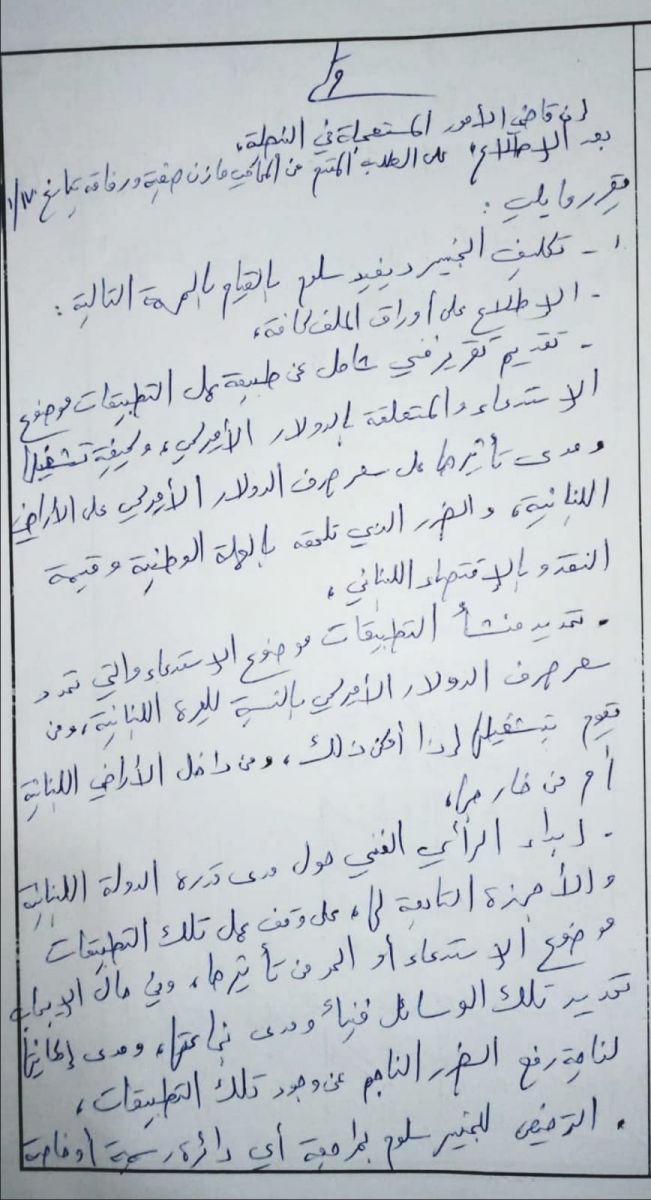 قرار
إن قاضي الأمور المستعجلة في النبطية،
بعد الإطلاع على الطلب المقدم من المحامي مازن صفية ورفاقه بتاريخ
يقرر ما يلي:
١- تكليف الخبير ديفيد سلوم بالقيام بالمهمة التالية:
- الإطلاع على أوراق الملف كافة،
- تقديم تقرير فني شامل عن طبيعة عمل التطبيقات موضوع
الإستدعاء والمتعلقة بالدولار الأميركي، وكيفية تشغيلها
ومدى تأثيرها على سعر صرف الدولار الأميركي على الأراضي
اللبنانية، والضرر الذي تلحقه بالعملة الوطنية وقيمة
النقد وبالإقتصاد اللبناني،
- تحديد منشأ التطبيقات موضوع الإستدعاء والتي تحدد
سعر صرف الدولار الأميركي بالنسبة لليرة اللبنانية، ومن
يقوم بتشغيلها إذا أمكن ذلك، ومن داخل الأراضي اللبنانية
أم من خارجها،
- إبداء الرأي الفني حول مدى قدرة الدولة اللبنانية
والأجهزة التابعة لها، على وقف عمل تلك التطبيقات
موضوع الإستدعاء أو الحد من تأثيرها، وفي حال الإيجاب
تحديد تلك الوسائل فنياً ومدى نجاعتها، ومدى إمكانيتها
لناحية رفع الضرر الناجم عن وجود تلك التطبيقات،
- الترخيص للخبير سلوم بمراجعة أي دائرة رسمية أو خاصة